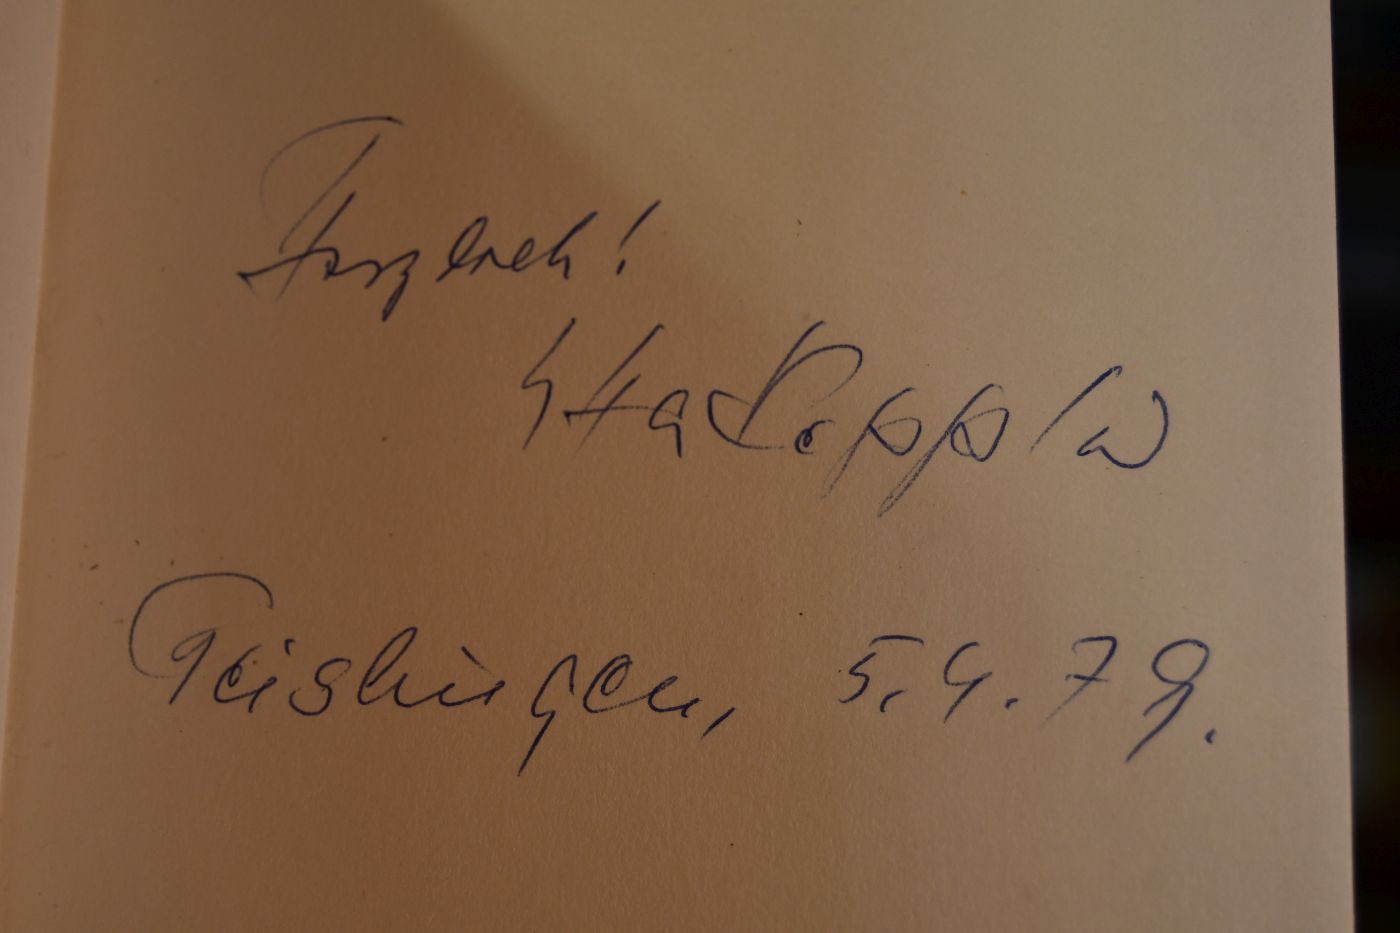 Herzlich!
Utta Keppler
Geislingen, 5.4.79.